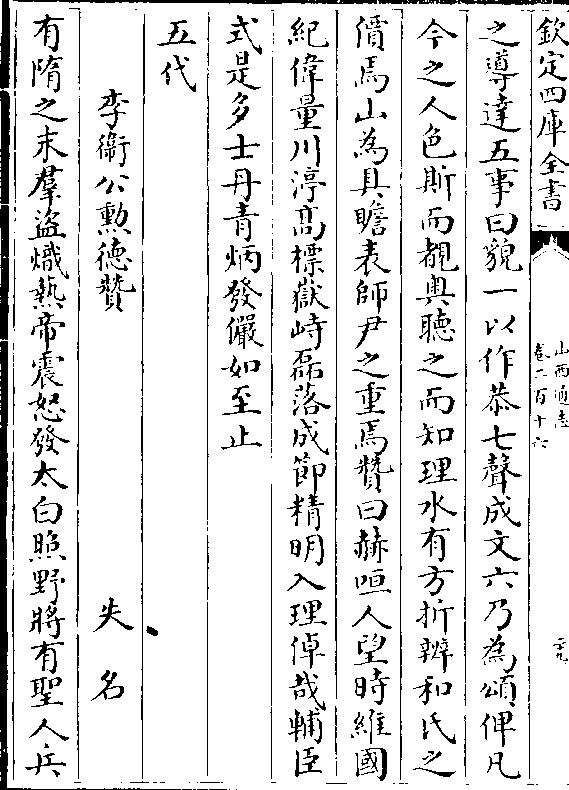 欽定四庫全書
山西通志
卷二百十六
二十九
之導達五事曰貌一以作恭七聲成文六乃為頌俾凡
今之人色斯而覩輿聽之而知理水有方折辨和氏之
價焉山為具瞻表師尹之重焉贊曰赫咺人望時維國
紀偉量川渟髙標嶽峙磊落成節精明入理倬哉輔臣
式是多士丹青炳發儼如至止
五代
李衞公勲德贊 失名
有隋之末羣盜熾熱帝震怒發太白照野將有聖人兵